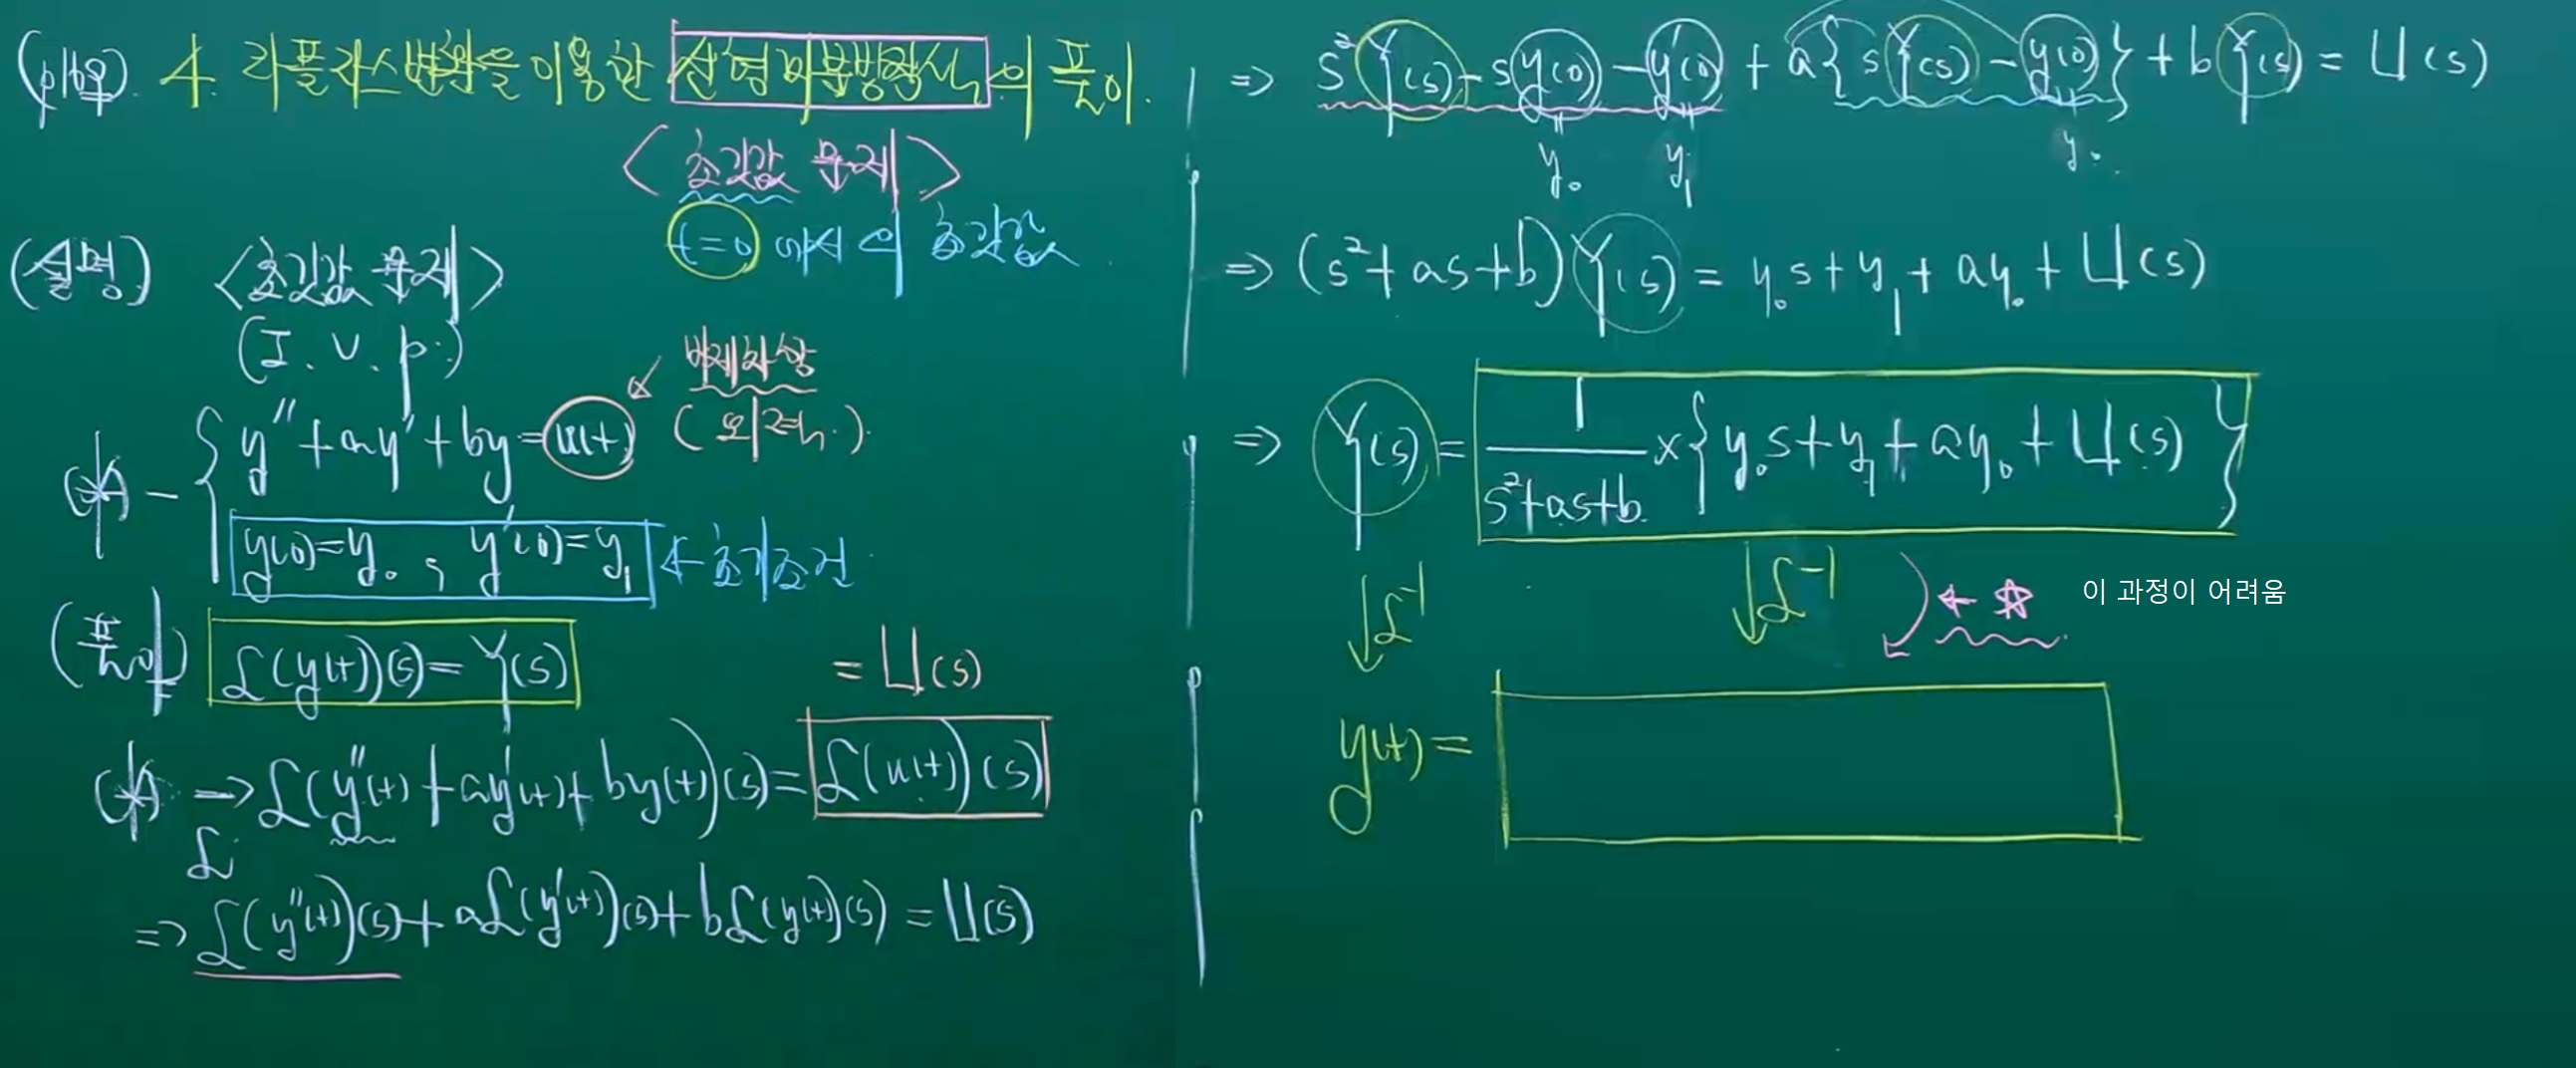 4. 라플라스변환을 이용한 선형미분방정식의 풀이.
<초기값 문제>
t=0 에서의 초기값
(설명) <초기값 문제>
(I.V.p.)
y''+ay'+by=u(t)
y(0)=y₀, y'(0)=y₁ ← 초기조건
(풀이) ℒ(y(t))(s)=Y(s)
=U(s)
→ ℒ(y''(t)+ay'(t)+by(t))(s)=ℒ(u(t))(s)
ℒ
⇒ ℒ(y''(t))(s)+aℒ(y'(t))(s)+bℒ(y(t))(s)=U(s)
⇒ s²Y(s)-sy(0)-y'(0)+a{sY(s)-y(0)}+bY(s)=U(s)
y₀ y₁ y₀
⇒ (s²+as+b)Y(s)=y₀s+y₁+ay₀+U(s)
⇒ Y(s)=1/(s²+as+b)×{y₀s+y₁+ay₀+U(s)}
↓ℒ⁻¹ ↓ℒ⁻¹ ←☆ 이 과정이 어려움
y(t)=